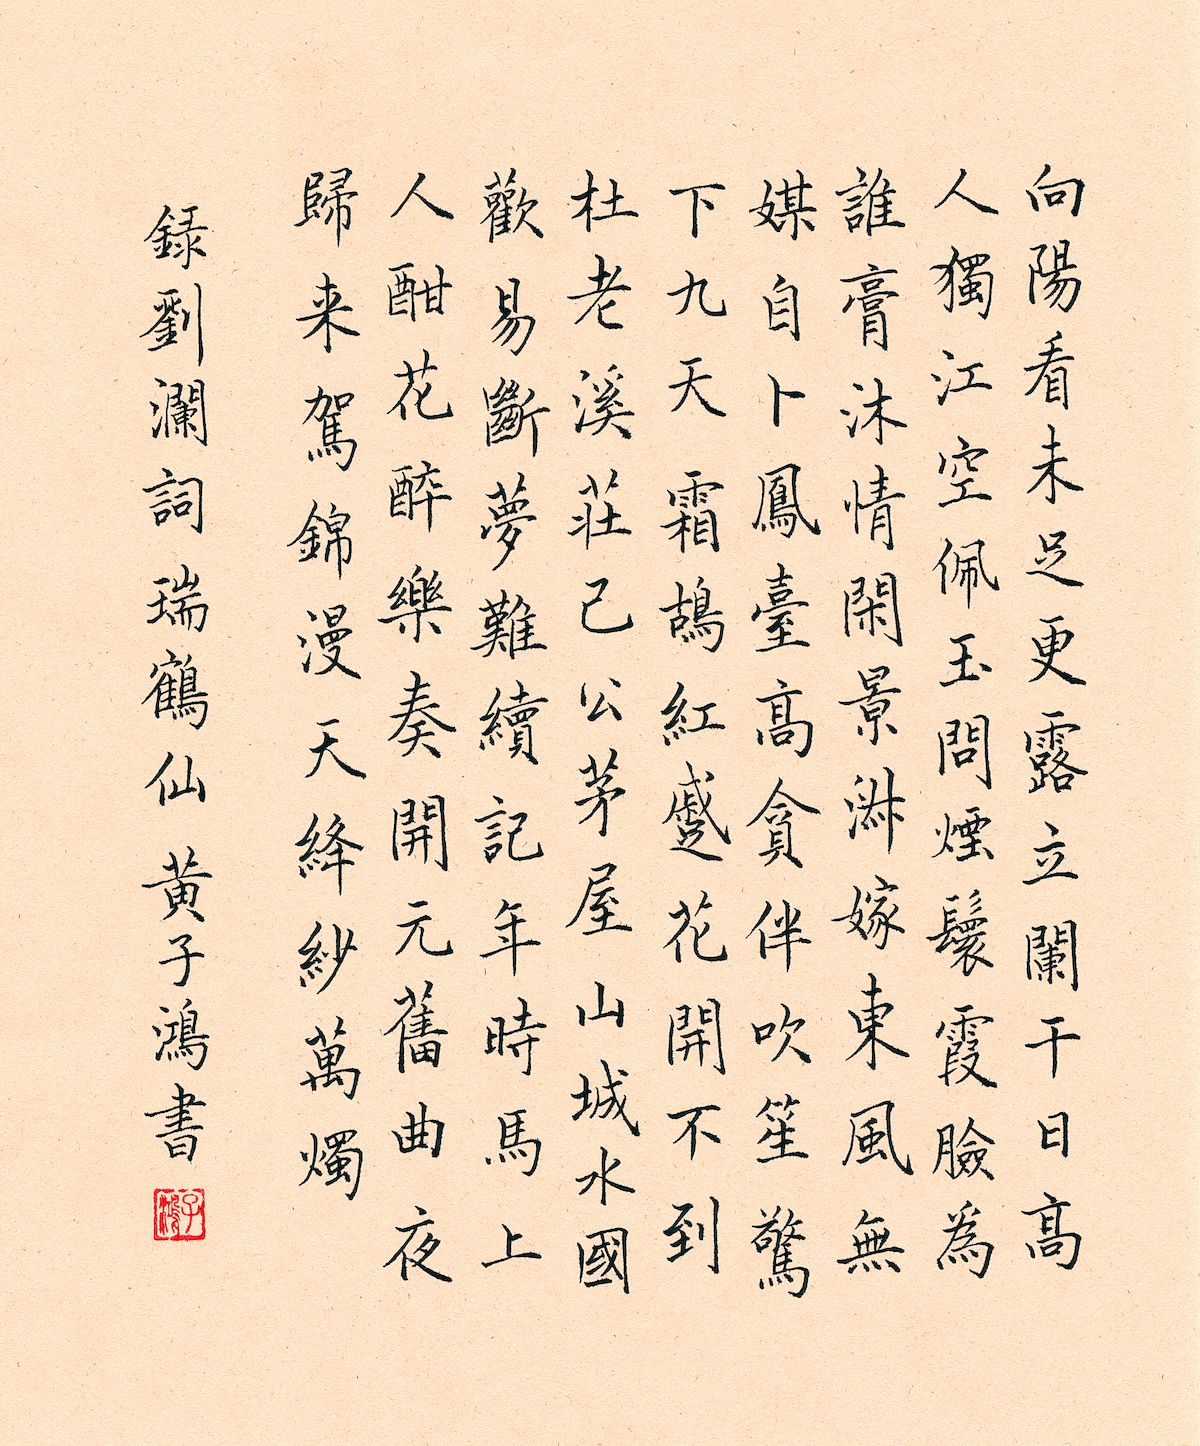 向陽看未足更露立闌干日高
人獨江空佩玉問煙鬟霞臉為
誰膏沐情閑景淋嫁東風無
媒自卜鳳臺高貪伴吹笙驚
下九天霜鵠紅蹙花開不到
杜老溪莊已公茅屋山城水國
歡易斷夢難續記年時馬上
人酣花醉樂奏開元舊曲夜
歸来駕錦漫天絳紗萬燭
録劉瀾詞瑞鶴仙黃子鴻書
子鴻